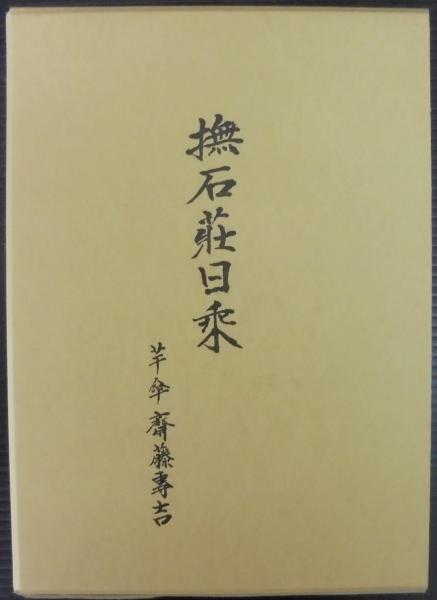 撫石莊日乘
芋傘 齋藤專吉